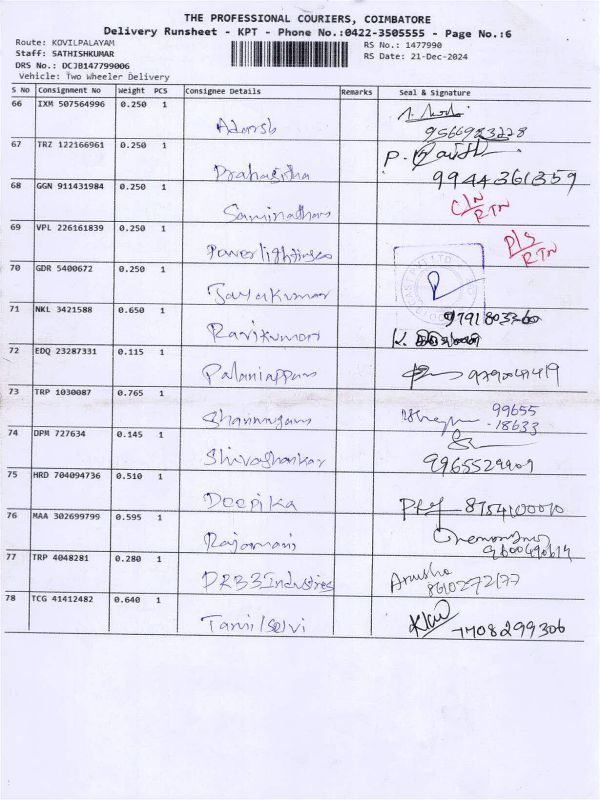 THE PROFESSIONAL COURIERS, COIMBATORE
Delivery Runsheet - KPT - Phone No.:0422-3505555 - Page No.:6
Route: KOVILPALAYAM
Staff: SATHISHKUMAR
DRS No.: DCJB147799006
Vehicle: Two Wheeler Delivery
RS No.: 1477990
RS Date: 21-Dec-2024
S No Consignment No Weight PCS Consignee Details Remarks Seal & Signature
66 IXM 507564996 0.250 1
Adarsh
67 TRZ 122166961 0.250 1
Prahasitha 9944361359
68 GGN 911431984 0.250 1
Saminathan C/N RTN
69 VPL 226161839 0.250 1
D/S RTN
70 GDR 5400672 0.250 1
Jayakumar
71 NKL 3421588 0.650 1
Ravikumar
72 EDQ 23287331 0.115 1
Palaniappan
73 TRP 1030087 0.765 1
Shanmugam 99655
-18633
74 DPM 727634 0.145 1
Shivashankar 9965529909
75 HRD 704094736 0.510 1
Deepika 8754100070
76 MAA 302699799 0.595 1
Rajamani 9600490614
77 TRP 4048281 0.280 1
DRB3 Industries Anusha
8610272177
78 TCG 41412482 0.640 1
Tamilselvi 7708299306